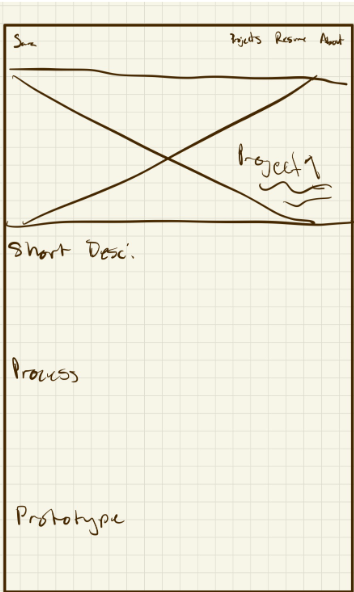 Projects Resume About
Project 1
Short Desc:
Process
Prototype